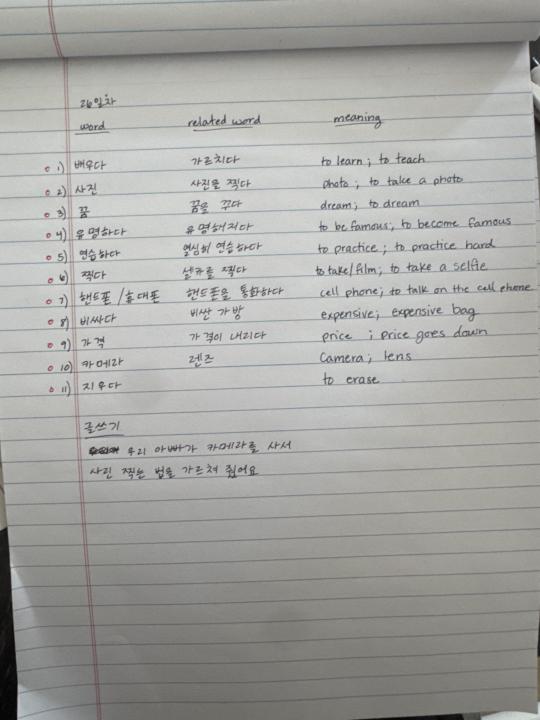 26일차
word related word meaning
1) 배우다 가르치다 to learn; to teach
2) 사진 사진을 찍다 photo; to take a photo
3) 꿈 꿈을 꾸다 dream; to dream
4) 유명하다 유명해지다 to be famous; to become famous
5) 연습하다 열심히 연습하다 to practice; to practice hard
6) 찍다 셀카를 찍다 to take/film; to take a selfie
7) 핸드폰/휴대폰 핸드폰을 통화하다 cell phone; to talk on the cell phone
8) 비싸다 비싼 가방 expensive; expensive bag
9) 가격 가격이 내리다 price ; price goes down
10) 카메라 렌즈 camera; lens
11) 지우다 to erase
글쓰기
우리 아빠가 카메라를 사서
사진 찍는 법을 가르쳐 줬어요